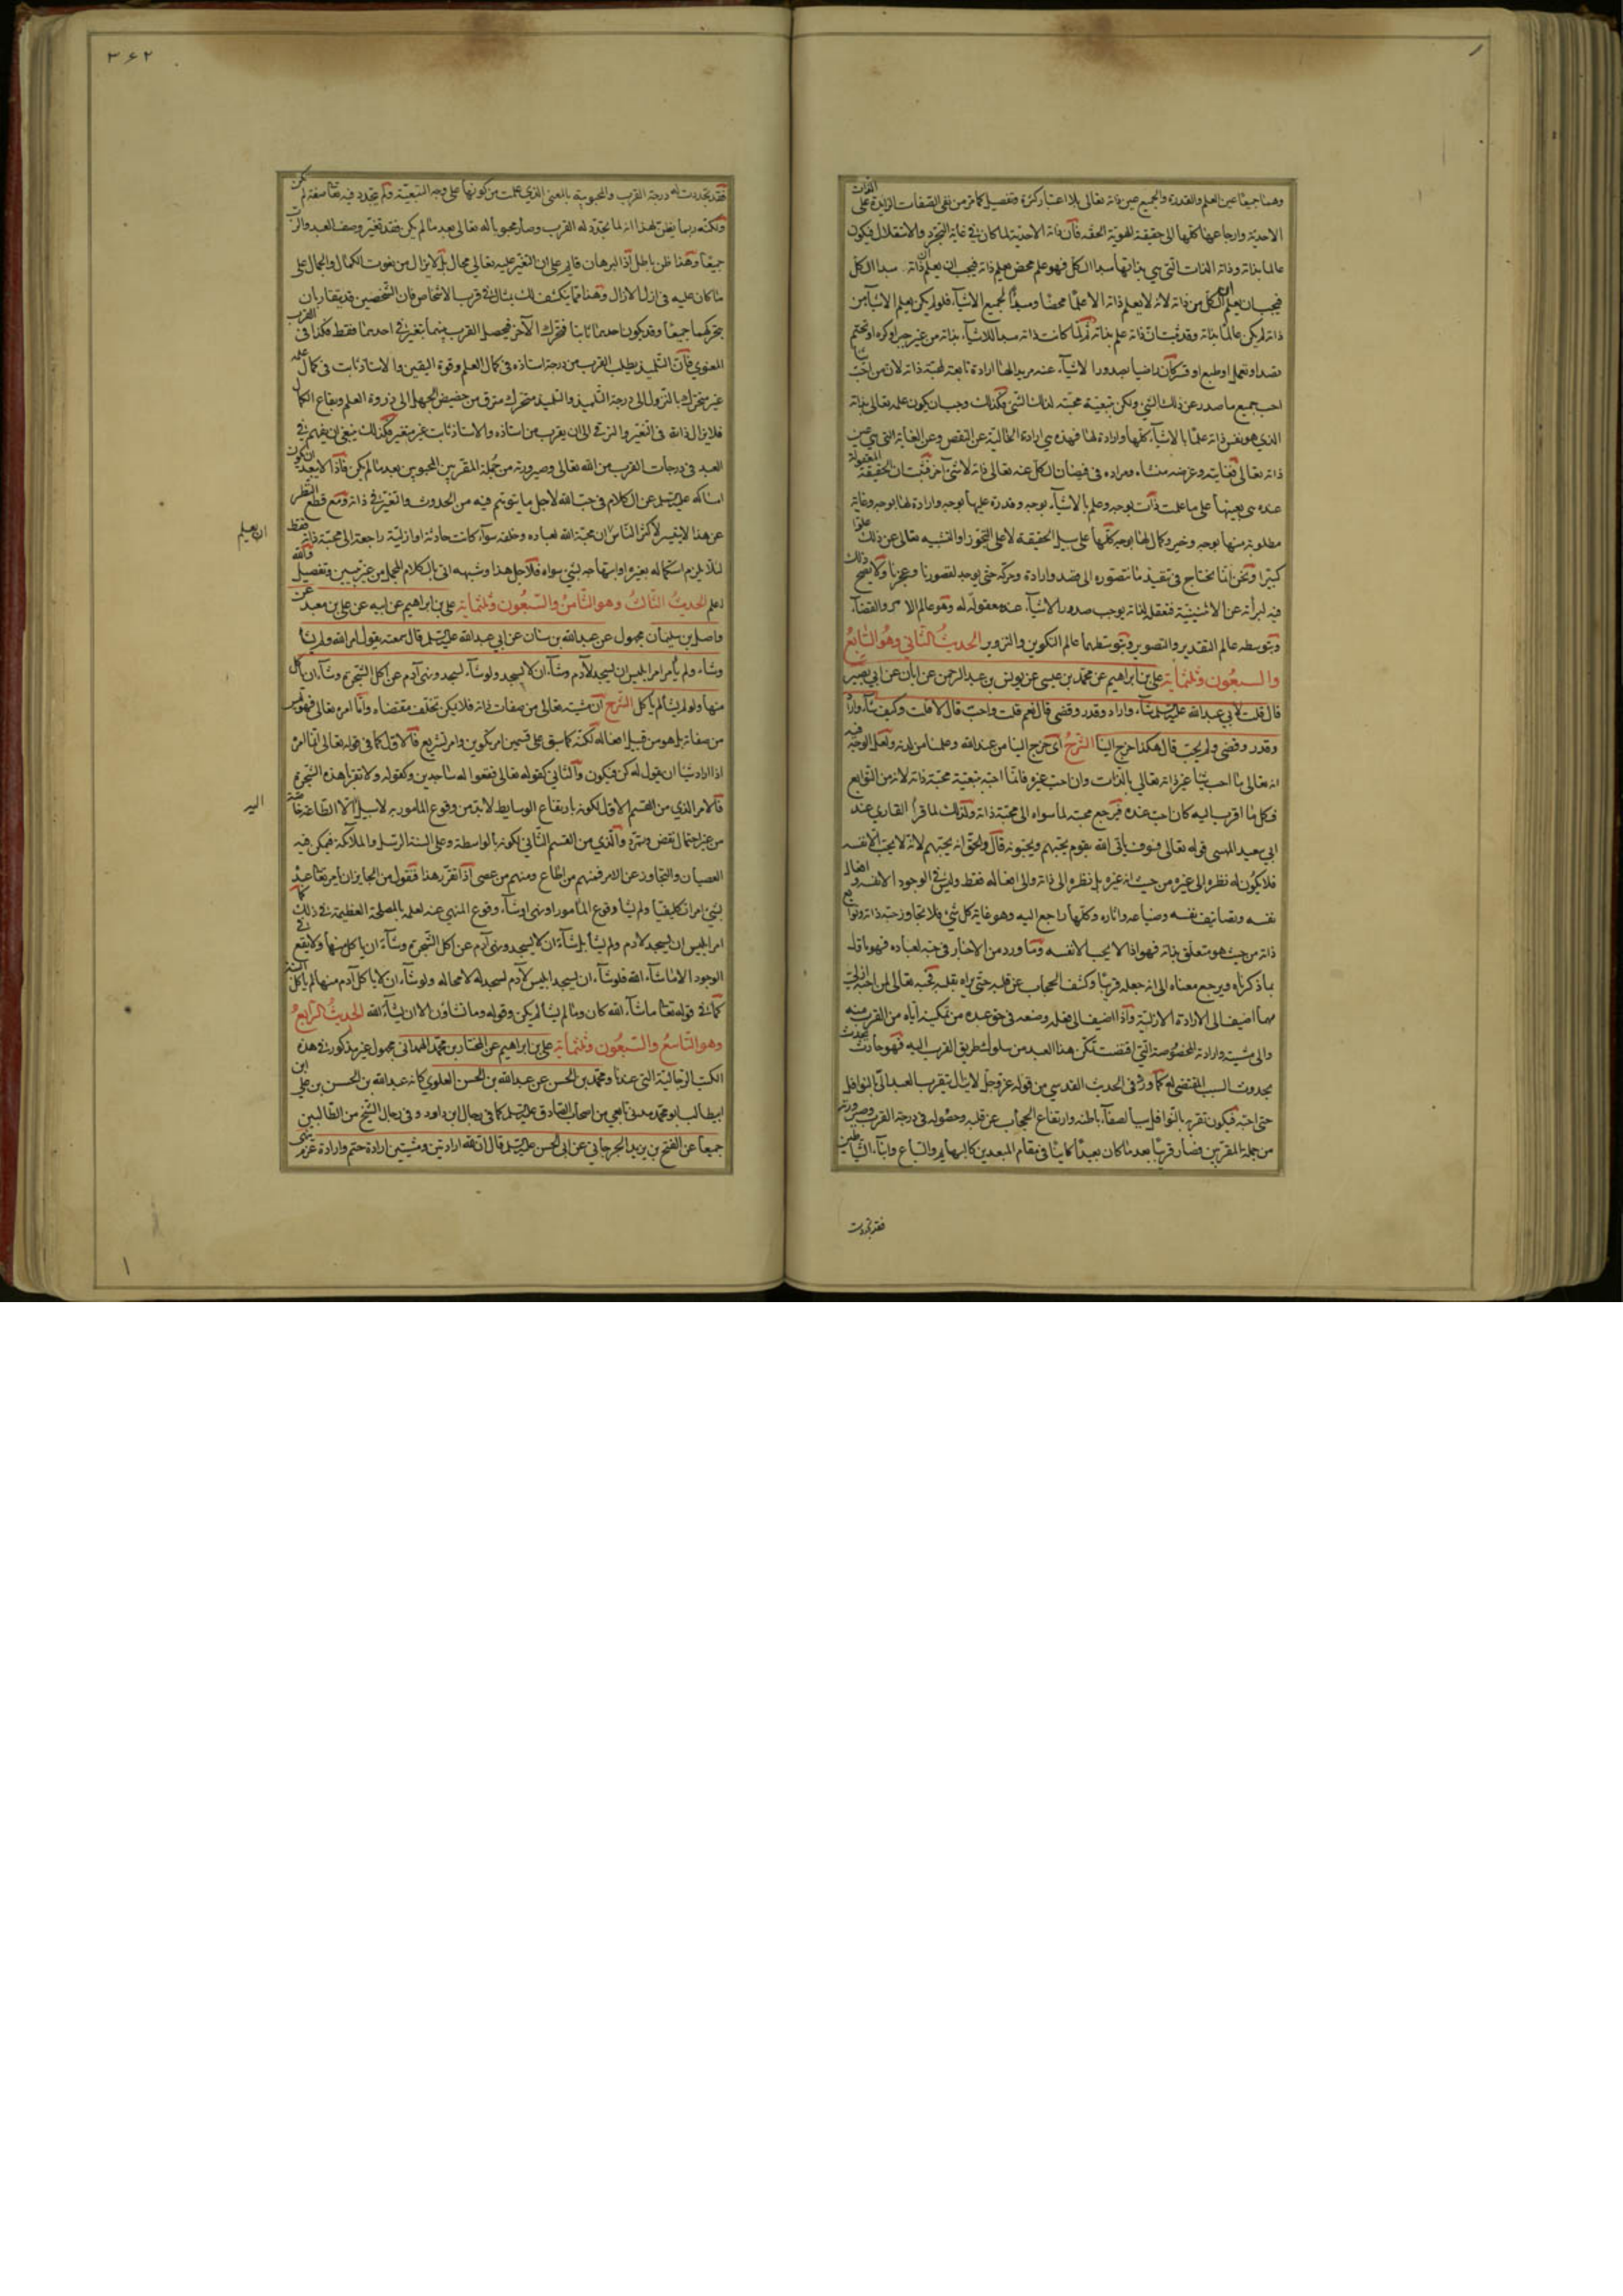 وهما جميعا عين العلم والقدرة والجميع عين ذاته تعالى بلا اعتبار كثرة وتفصيل كما مر من نفى الصفات الزايدة على الذات
الاحدية وارجاعها كلها الى حقيقة الهوية الحقه فان ذاته الاحدية لما كان فى غاية التجرد والاستقلال فيكون
عالما بذاته وذاته الذات التى هى بذاتها مبدا الكل فهو علم محض يعلم ذاته فيجب ان يعلم ان ذاته مبدا الكل
فيجب ان يعلم الكل من ذاته لانه لا يعلم ذاته الا علما محضا ومبدأ لجميع الاشياء فلو لم يكن يعلم الاشياء من
ذاته لم يكن عالما بذاته وقد ثبت ان ذاته علم بذاته ثم لما كانت ذاته مبدا للاشياء بذاته من غير جبر او كره او تجشم
قصد او تعمل او طبع او قسر كان راضيا بصدور الاشياء عنه مريدا لها ارادة تابعة لمحبة ذاته لان من احب شيئا
احب جميع ما صدر عن ذلك الشئ ولكن بتبعية محبته لذلك الشئ وكذلك وجب ان يكون علمه تعالى بذاته
الذى هو نفس ذاته علما بالاشياء كلها وارادة لها فهذه هى ارادة الخالية عن النقص وعن الغاية التى هى غير
ذاته تعالى فغايته وغرضه منشاء ومراده فى فيضان الكل عنه تعالى ذاته لا شئ آخر فثبت ان الحقيقة المعقولة
عنده هى بعينها على ما علمت ذات بوجه وعلم بالاشياء بوجه وقدرة عليها بوجه وارادة لها بوجه وغاية
مطلوبة منها بوجه وخير وكمال لها بوجه كلها على سبيل الحقيقة لا على التجوز او التشبيه تعالى عن ذلك علوا
كبيرا ونحن انما نحتاج فى تنفيذ ما نتصوره الى قصد وارادة وحركة حتى يوجد لقصورنا وعجزنا ولا يصح ذلك
فيه لبرأته عن الاثنينية فتعقله لذاته يوجب صدور الاشياء عنه معقولة له وهو عالم الامر والقضاء
وبتوسطه عالم التقدير والتصوير وبتوسطهما عالم التكوين والتزوير الحديث الثانى وهو السابع
والسبعون وثلثمائة على بن ابراهيم عن محمد بن عيسى عن يونس بن عبد الرحمن عن ابان عن ابى بصير
قال قلت لابى عبد الله عليه السلام شاء واراد وقدر وقضى قال نعم قلت واحب قال لا قلت وكيف شاء واراد
وقدر وقضى ولم يحب قال هكذا خرج الينا الشرح اى خرج الينا من عند الله وعلمنا من لدنه ولعل الوجه فيه
انه تعالى ما احب شيئا غير ذاته تعالى بالذات وان احب غيره فانما احبه بتبعية محبة ذاته لانه من التوابع
فكل ما اقرب اليه كان احب عنده فيرجع محبته لما سواه الى محبة ذاته ولذلك لما قرأ القارى عند
ابى سعيد المهنى قوله تعالى فسوف يأتى الله بقوم يحبهم ويحبونه قال والحق انه يحبهم لانه لا يحب الا نفسه
فلا يكون له نظر الى غيره من حيث انه غيره بل نظره الى ذاته والى افعاله فقط وليس فى الوجود الا نفسه وافعاله
نفسه وتصانيف نفسه وصنايعه واثاره وكلها راجع اليه وهو غاية كل شئ فلا يتجاوز حبه ذاته وتوابع
ذاته من حيث هو متعلق بذاته فهو اذا لا يحب الا نفسه وما ورد من الاخبار فى حبه لعباده فهو ماول
بما ذكرناه ويرجع معناه الى انه جعله قريبا وكشف الحجاب عن قلبه حتى يراه بقلبه فحبه تعالى لمن احبه ازلى
مهما اضيف الى الارادة الازلية واذا اضيف الى فعله وضعه فى حق عبده من تمكينه اياه من القرب منه
والى مشيته وارادته المخصوصة التى اقتضت تمكن هذا العبد من سلوك طريق القرب اليه فهو حادث يحدث
بحدوث السبب المقتضى له كما ورد فى الحديث القدسى من قوله عز وجل لا يزال يتقرب العبد الى بالنوافل
حتى احبه فيكون تقربه بالنوافل سببا لصفاء باطنه وارتفاع الحجاب عن قلبه وحصوله فى درجة القرب وصيرورته
من جملة المقربين فصار قريبا بعد ما كان بعيدا كاينا فى مقام المبعدين كالبهايم والسباع وابناء الشياطين
فقد تجددت
٣۶٢
فقد تجددت له درجة القرب والمحبوبية بالمعنى الذى علمت من كونها على وجه التبعية ولم يتجدد فيه تعالى صفة لم تكن
ولكنه ربما يظن بهذا انه لما تجدد له القرب وصار محبوبا له تعالى بعد ما لم يكن فقد تغير وصف العبد والرب
جميعا وهذا ظن باطل اذ البرهان قايم على ان التغير عليه تعالى محال بل لا يزال من نعوت الكمال والجمال على
ما كان عليه فى ازل الازال وهذا مما ينكشف لك بمثال فى قرب الاشخاص فان الشخصين قد يتقاربان
بتحركهما جميعا وقد يكون احدهما ثابتا فتحرك الآخر فيحصل القرب بينهما بتغير فى احدهما فقط فكذا فى القرب
المعنوى فان التلميذ يطلب القرب من درجة استاذه فى كمال العلم وقوة اليقين والاستاذ ثابت فى كمال علمه
غير متحرك بالنزول الى درجة التلميذ والتلميذ متحرك مترق من حضيض الجهل الى ذروة العلم وبقاع الكمال
فلا يزال ذاته فى التغير والترقى الى ان يقرب من استاذه والاستاذ ثابت غير متغير فكذلك ينبغى ان يفهم فى
العبد فى درجات القرب من الله تعالى وصيرورته من جملة المقربين المحبوبين بعد ما لم يكن فاذا لا يبعد ان يكون
امساكه عليه السلام عن الكلام فى حب الله لاجل ما يتوهم فيه من الحدوث والتغير فى ذاته ومع قطع النظر
عن هذا لا يتيسر لاكثر الناس ان محبة الله لعباده وخلقه سواء كانت حادثة او ازلية راجعة الى محبة ذاته فقط
ان يعلم
لئلا يلزم استكماله بغيره او ابتهاجه بشئ سواه فلاجل هذا وشبهه اتى بالكلام المجمل من غير تبيين وتفصيل والله
اعلم الحديث الثالث وهو الثامن والسبعون وثلثمائة على بن ابراهيم عن ابيه عن على بن معبد عن
واصل بن سليمان مجهول عن عبد الله بن سنان عن ابى عبد الله عليه السلام قال سمعته يقول امر الله ولم يشأ
وشاء ولم يأمر امر ابليس ان يسجد لآدم وشاء ان لا يسجد ولو شاء لسجد ونهى آدم عن اكل الشجرة وشاء ان ياكل
منها ولو لم يشأ لم يأكل الشرح ان مشيته تعالى من صفات ذاته فلا يمكن تخلف مقتضاه واما امره تعالى فهو ليس
من صفاته بل هو من قبيل افعاله لكنه كما سبق على قسمين امر تكوين وامر تشريع فالاول كما فى قوله تعالى انما امره
اذا اراد شيئا ان يقول له كن فيكون والثانى كقوله تعالى فقعوا له ساجدين وكقوله ولا تقربا هذه الشجرة
فالامر الذى من القسم الاول لكونه بارتفاع الوسايط لابد من وقوع المامور به لا سبيل الا الطاعة خاصة
اليه
من غير احتمال نقض وتمرد والذى من القسم الثانى لكونه بالواسطة وعلى السنة الرسل والملائكة فيمكن فيه
العصيان والتجاوز عن الامر فمنهم من اطاع ومنهم من عصى اذا تقرر هذا فنقول من الجايز ان يأمر تعالى عبده
بشئ امرا تكليفيا ولم يشأ وقوع المأمور او نهى او شاء وقوع المنهى عنه لعلمه بالمصلحة العظيمة فى ذلك كما
امر ابليس ان يسجد لادم ولم يشأ بل شاء ان لا يسجد ونهى آدم عن اكل الشجرة وشاء ان ياكل منها ولا يقع فى
الوجود الا ما شاء الله فلو شاء ان يسجد ابليس لآدم لسجد له لا محاله ولو شاء ان لا ياكل آدم منها لم ياكل البتة
كما فى قوله تعالى ما شاء الله كان وما لم يشأ لم يكن وقوله وما تشاؤن الا ان يشاء الله الحديث الرابع
وهو التاسع والسبعون وثلثمائة على بن ابراهيم عن المختار بن محمد الهمدانى مجهول غير مذكور فى هذه
الكتب الرجالية التى عندنا ومحمد بن الحسن عن عبد الله بن الحسن العلوى كانه عبد الله بن الحسن بن على ابن
ابيطالب ابو محمد مدنى تابعى من اصحاب الصادق عليه السلام كما فى رجال ابن داود وفى رجال الشيخ من الطالبين
جميعا عن الفتح بن يزيد الجرجانى عن ابى الحسن عليه السلام قال ان لله ارادتين ومشيتين ارادة حتم وارادة عزم ينهى